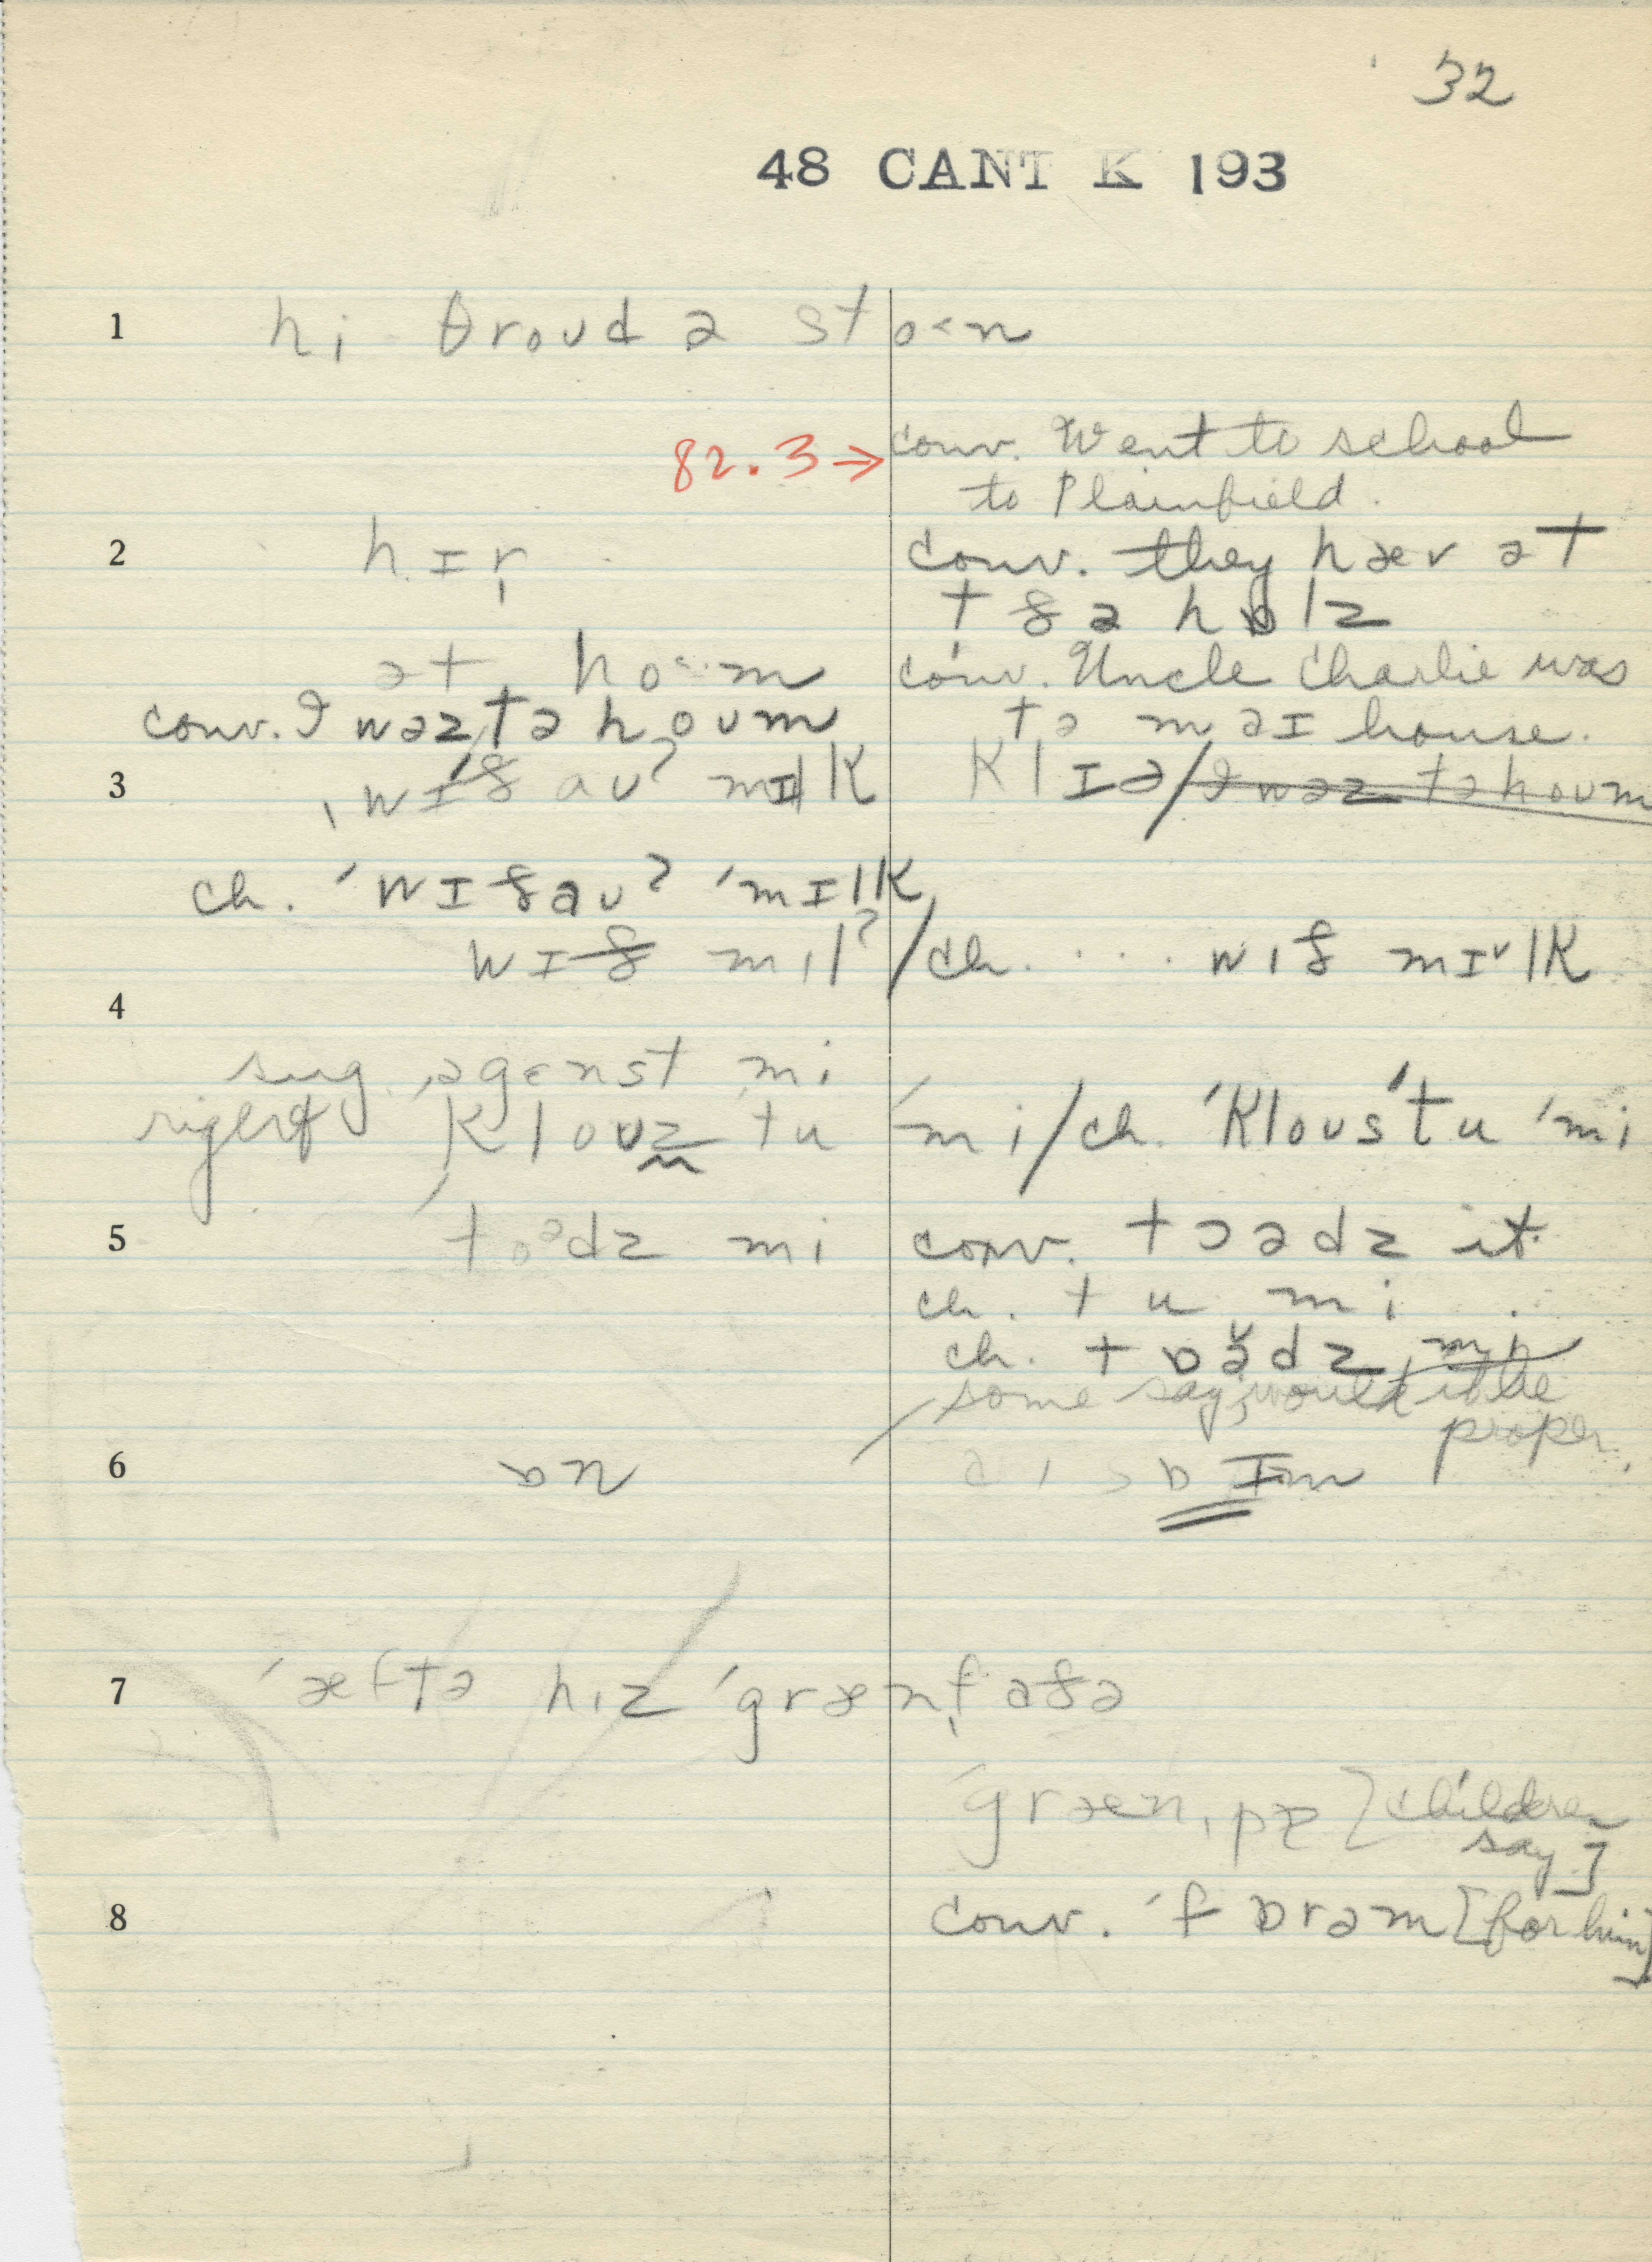 32
48 CANT K 193
1 hi θroud ə sto<n
82.3 → conv. Went to school
to Plainfield.
2 hɪr conv. they hæv ət
tðə hɒlz
ət ho<m conv. Uncle Charlie was
conv. I wəz tə houm tə məɪ house.
3 ˌwɪðauʔ mɪlk klɪə/I wəz tə houm
ch. ˈwɪðəuʔ ˈmɪlk
wɪð mɪlʔ/ch. . . . . wɪð mɪ˅lk
4
sug. əgɛnst mi
ˈklouz tu ˈmi/ch. ˈklousˈtu ˈmi
5 ˈtoədz mi conv. tɔədz it.
ch. tu mi .
ch. tɒədz mi
some say, would
proper.
6 ɒn
7 ˈæftə hɪz ˈgrænˌfaðə
ˈgrænˌpɪ [children
say]
8 conv. ˈfɒrəm [for him]